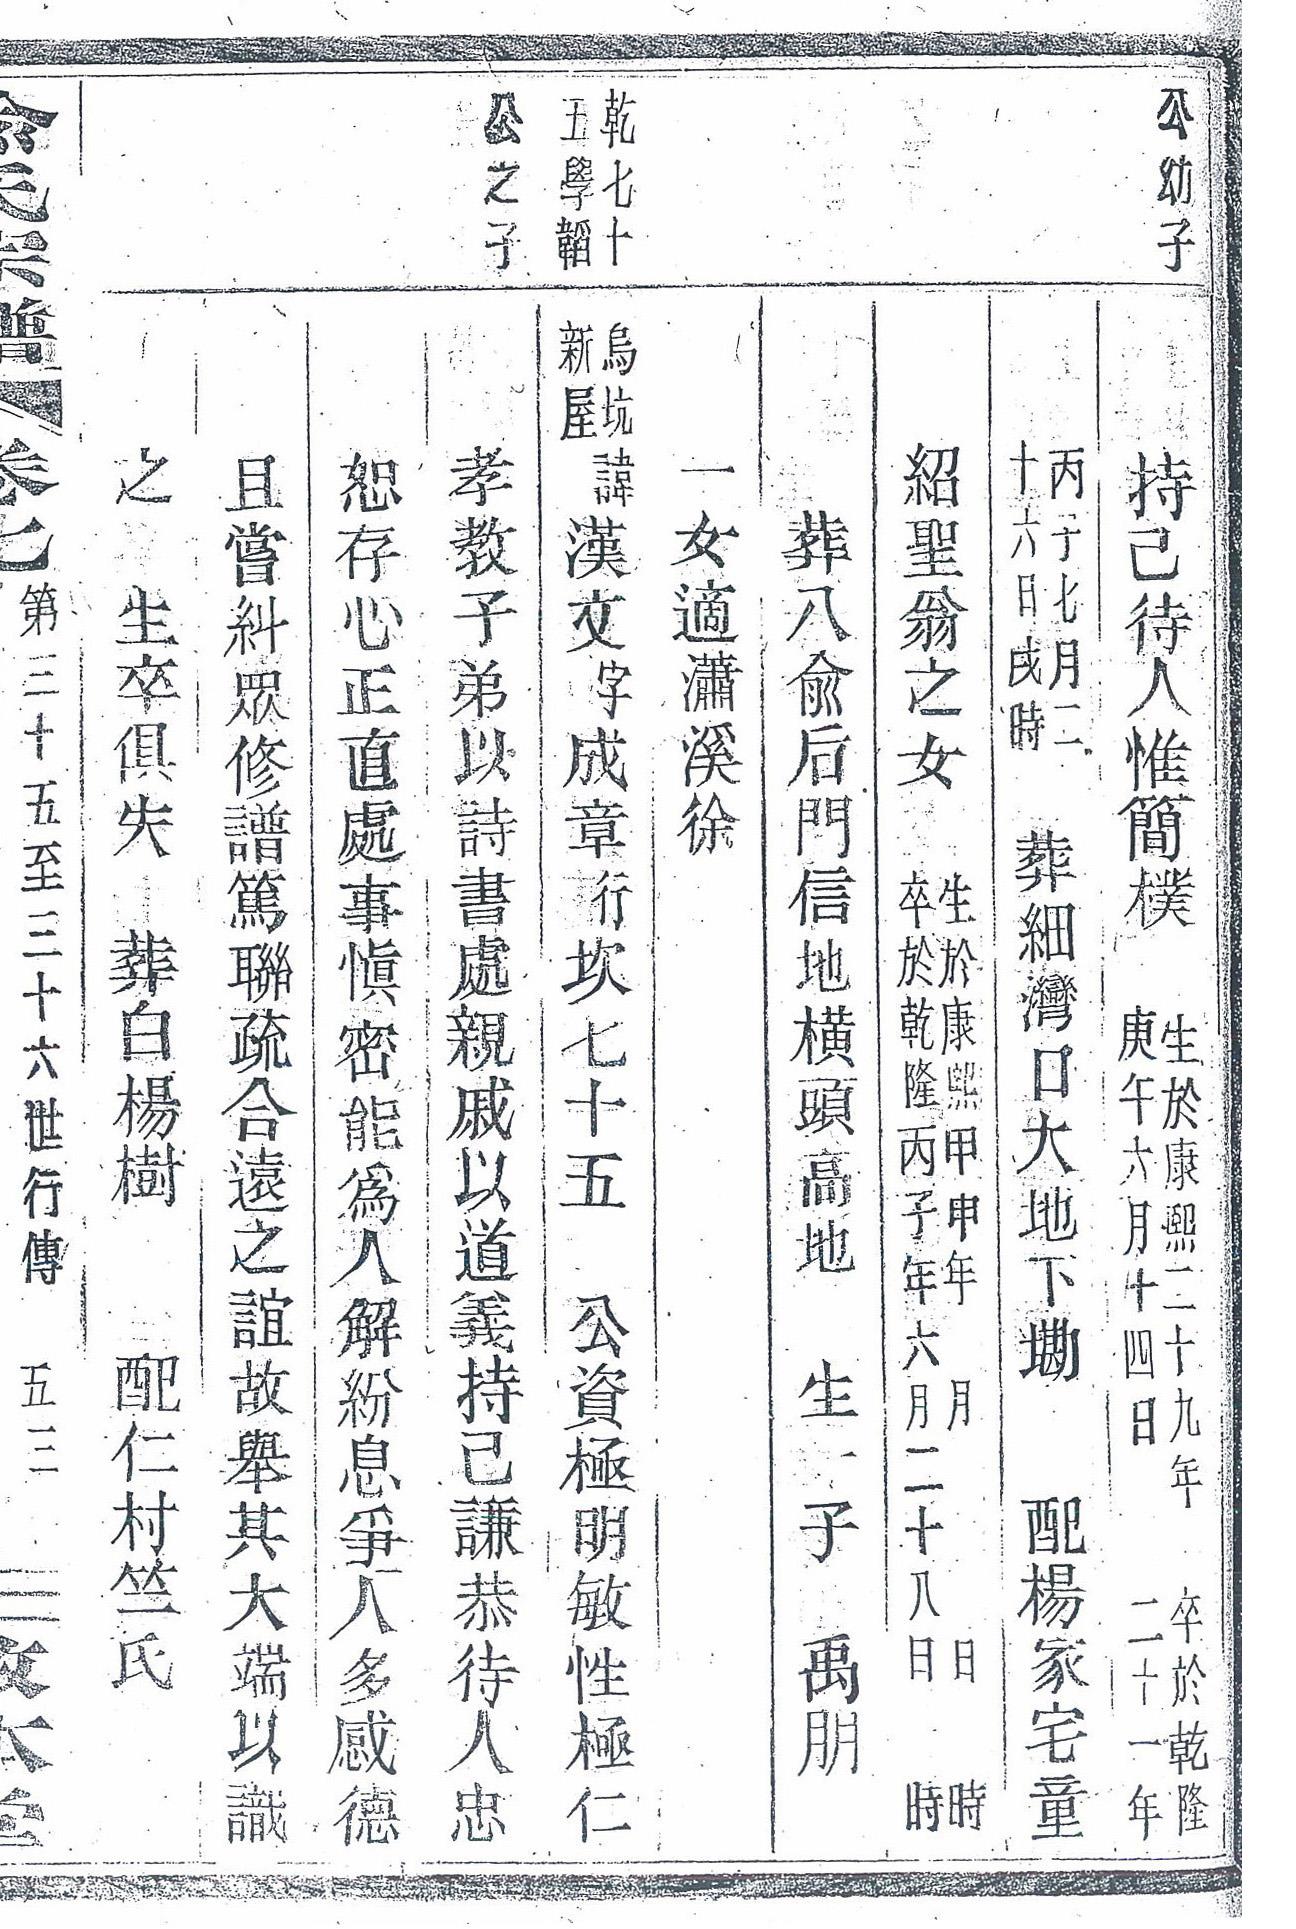 公幼子
持己待人惟簡樸 生於康熙二十九年庚午六月十四日 卒於乾隆二十一年
丙子七月二十六日戌時 葬細灣口大地下墈 配楊家宅童
紹聖翁之女 生於康熙甲申年 月 日 時 卒於乾隆丙子年六月二十八日 時
葬八俞后門信地橫頭高地 生一子 禹朋
一女適瀟溪徐
乾七十五學韜
公之子
烏坑新屋 諱漢文字成章行坎七十五 公資極明敏性極仁
孝教子弟以詩書處親戚以道義持己謙恭待人忠
恕存心正直處事愼密能為人解紛息爭人多感德
且嘗糾眾修譜篤聯疏合遠之誼故舉其大端以識
之 生卒俱失 葬白楊樹 配仁村竺氏
氏宗譜 卷七 第三十五至三十六世行傳 五三 敦本堂